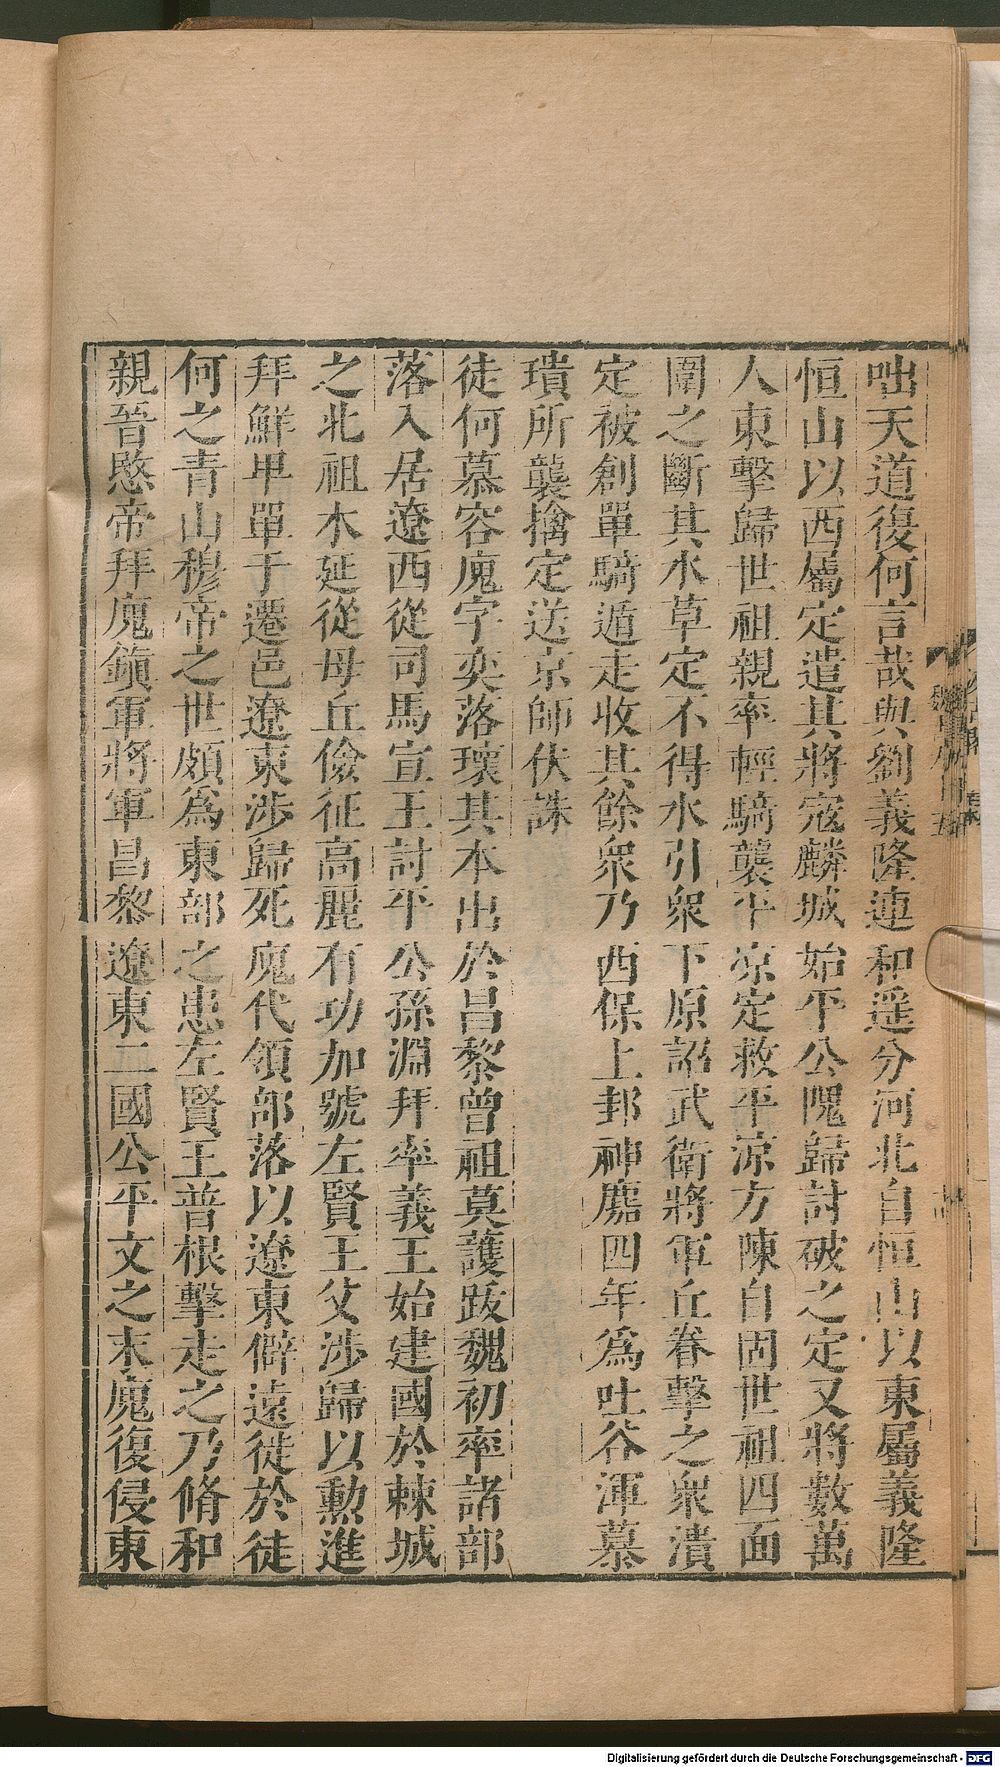 咄天道復何言哉與劉義隆連和遥分河北自恒山以東屬義隆
恒山以西屬定遣其將寇麟城始平公隗歸討破之定又將數萬
人東擊歸世祖親率輕騎襲平凉定救平凉方陳自固世祖四面
圍之斷其水草定不得水引衆下原詔武衛將軍丘眷擊之衆潰
定被創單騎遁走收其餘衆乃西保上邽神䴥四年爲吐谷渾慕
璝所襲擒定送京師伏誅
徒何慕容廆字奕落瓌其本出於昌黎曾祖莫護跋魏初率諸部
落入居遼西從司馬宣王討平公孫淵拜率義王始建國於棘城
之北祖木延從母丘儉征高麗有功加號左賢王父涉歸以勲進
拜鮮卑單于遷邑遼東涉歸死廆代領部落以遼東僻遠徙於徒
何之青山穆帝之世頗爲東部之患左賢王普根擊走之乃脩和
親晉愍帝拜廆鎮軍將軍昌黎遼東二國公平文之末廆復侵東
Digitalisierung gefördert durch die Deutsche Forschungsgemeinschaft - DFG